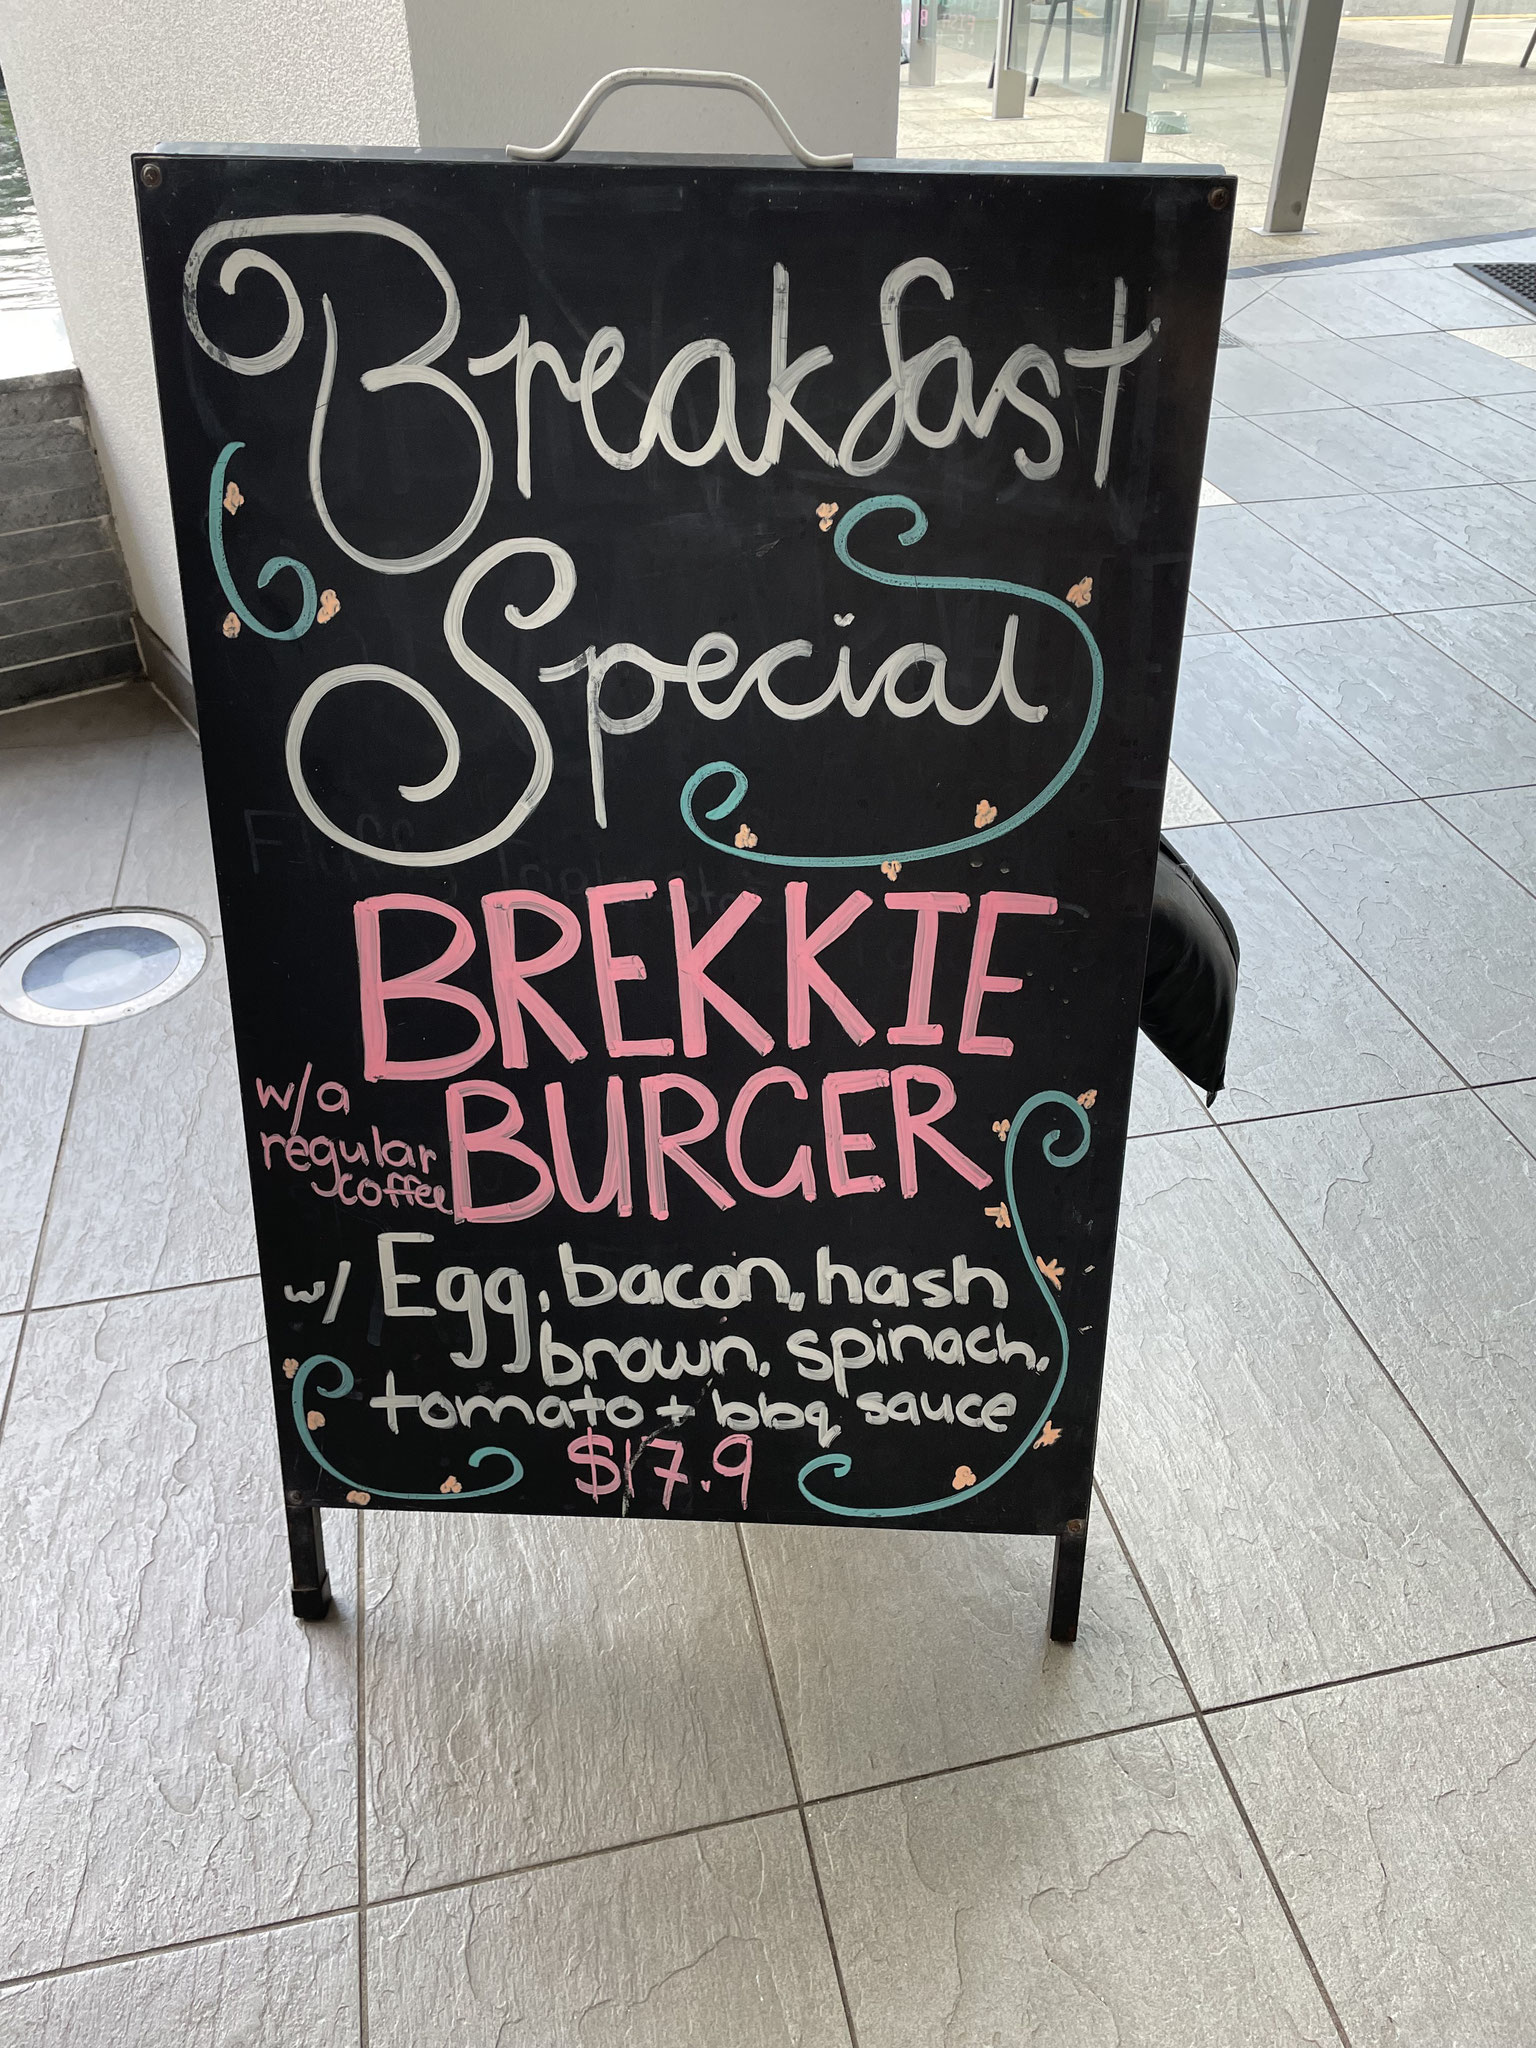 Breakfast
Special
BREKKIE
BURGER
w/a
regular
coffee
w/ Egg, bacon, hash
brown, spinach,
tomato + bbq sauce
$17.9